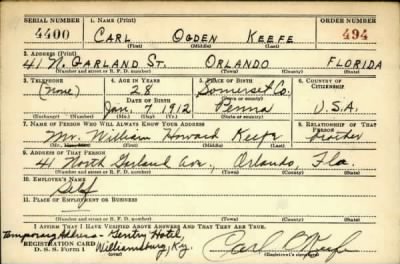 SERIAL NUMBER 1. NAME (Print) ORDER NUMBER
4400 CARL OGDEN KEEFE 494
(First) (Middle) (Last)
2. ADDRESS (Print)
41 N. GARLAND ST. ORLANDO FLORIDA
(Number and street or R. F. D. number) (Town) (County) (State)
3. TELEPHONE 4. AGE IN YEARS 5. PLACE OF BIRTH 6. COUNTRY OF CITIZENSHIP
(None) 28 Somerset Co.
DATE OF BIRTH (Town or county)
Jan. 7 1912 Penna U.S.A.
(Exchange) (No.) (Mo.) (Day) (Yr.) (State or country)
7. NAME OF PERSON WHO WILL ALWAYS KNOW YOUR ADDRESS 8. RELATIONSHIP OF THAT PERSON
Mr. William Howard Keefe Father
(Mr., Mrs., Miss) (First) (Middle) (Last)
9. ADDRESS OF THAT PERSON
41 North Garland Ave., Orlando, Fla.
(Number and street or R. F. D. number) (Town) (County) (State)
10. EMPLOYER'S NAME
Self
11. PLACE OF EMPLOYMENT OR BUSINESS
(Number and street or R. F. D. number) (Town) (County) (State)
I AFFIRM THAT I HAVE VERIFIED ABOVE ANSWERS AND THAT THEY ARE TRUE.
Temporary Address - Gentry Hotel,
REGISTRATION CARD
D. S. S. Form 1 Williamsburg, Ky. Carl O Keefe
(Registrant's signature)